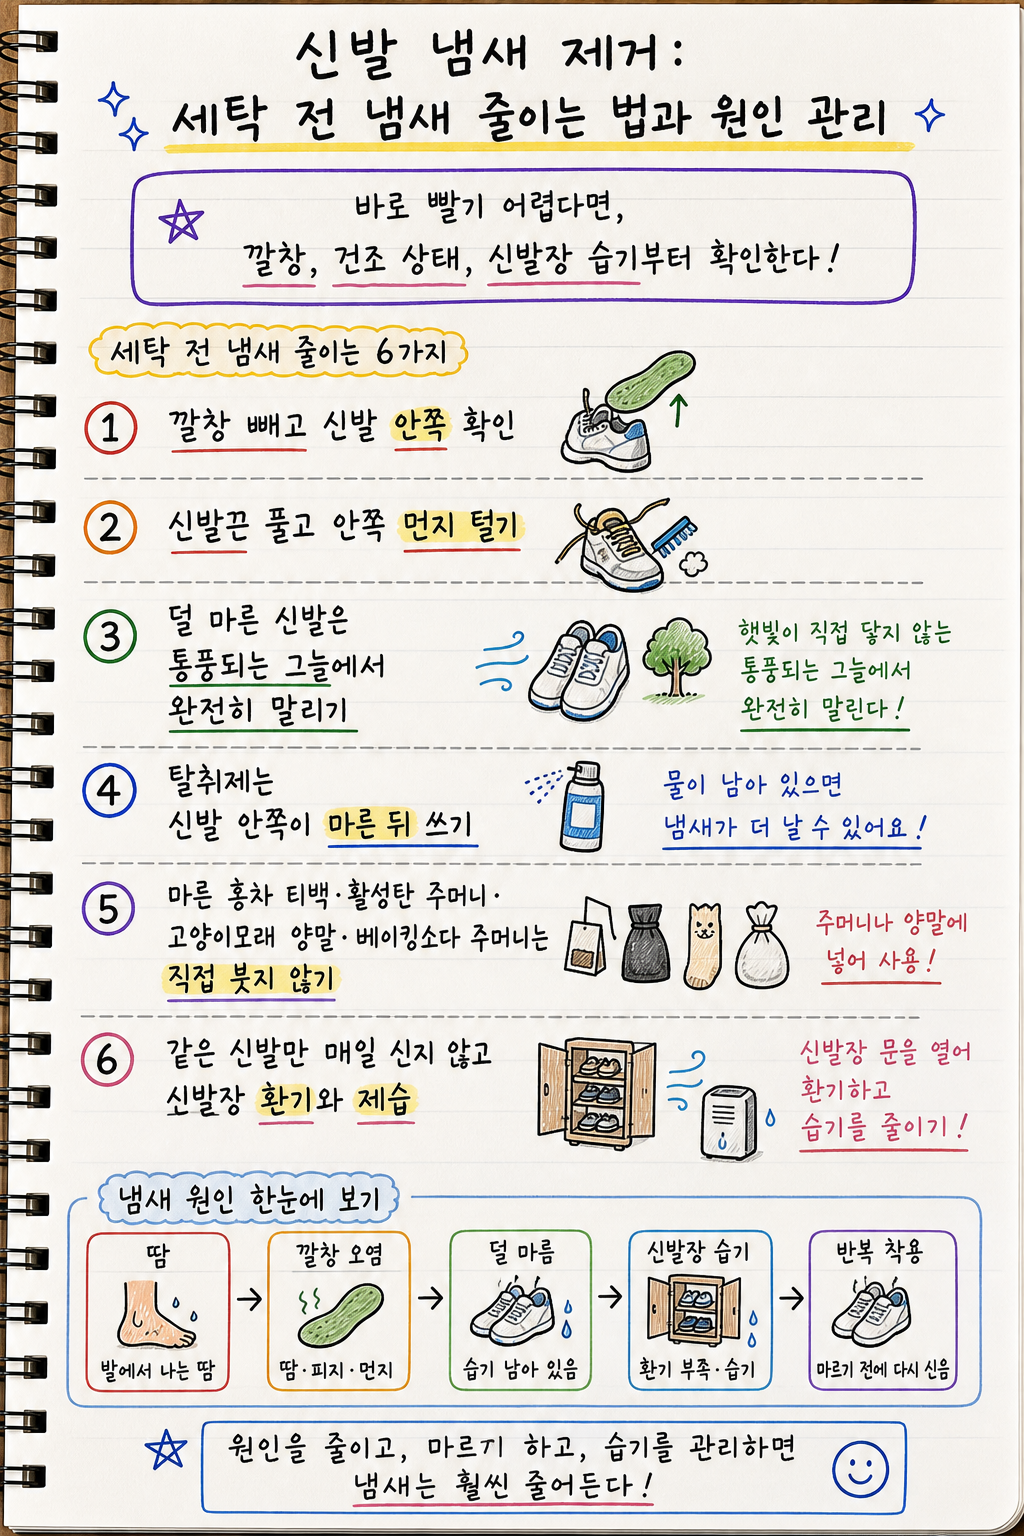 신발 냄새 제거:
세탁 전 냄새 줄이는 법과 원인 관리
바로 빨기 어렵다면,
깔창, 건조 상태, 신발장 습기부터 확인한다!
세탁 전 냄새 줄이는 6가지
1 깔창 빼고 신발 안쪽 확인
2 신발끈 풀고 안쪽 먼지 털기
3 덜 마른 신발은
통풍되는 그늘에서
완전히 말리기
햇빛이 직접 닿지 않는
통풍되는 그늘에서
완전히 말린다!
4 탈취제는
신발 안쪽이 마른 뒤 쓰기
물이 남아 있으면
냄새가 더 날 수 있어요!
5 마른 홍차 티백·활성탄 주머니·
고양이모래 양말·베이킹소다 주머니는
직접 붓지 않기
주머니나 양말에
넣어 사용!
6 같은 신발만 매일 신지 않고
신발장 환기와 제습
신발장 문을 열어
환기하고
습기를 줄이기!
냄새 원인 한눈에 보기
땀
발에서 나는 땀
→
깔창 오염
땀·피지·먼지
→
덜 마름
습기 남아 있음
→
신발장 습기
환기 부족·습기
→
반복 착용
마르기 전에 다시 신음
원인을 줄이고, 마르기 하고, 습기를 관리하면
냄새는 훨씬 줄어든다!